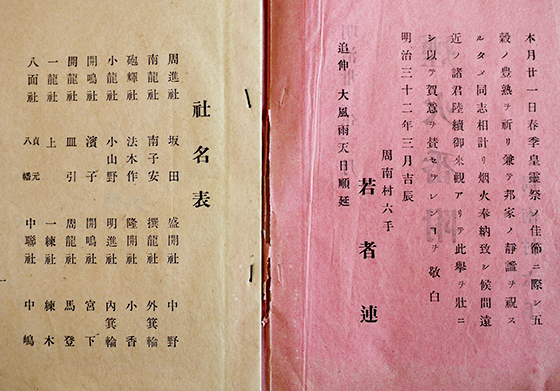 本月廿一日春季皇靈祭ノ佳節ニ際シ五
穀ノ豊熟ヲ祈リ兼テ邦家ノ靜謐ヲ祝ス
ルタメ同志相計リ烟火奉納致シ候間遠
近ノ諸君陸續御來觀アリテ此擧ヲ壯ニ
シ以テ賀意ヲ賛セラレンコヲ敬白
明治三十二年三月吉辰
周南村六手
若者連
追伸 大風雨天日順延
社名表
周進社 坂田 盛開社 中野
南龍社 南子安 撰龍社 外箕輪
砲輝社 法木作 隆開社 小香
小龍社 小山野 明進社 內箕輪
開鳴社 濱子 開鳴社 宮下
開龍社 皿引 周龍社 馬登
一龍社 上 一練社 練木
八面社 貞元 八幡 中聯社 中嶋